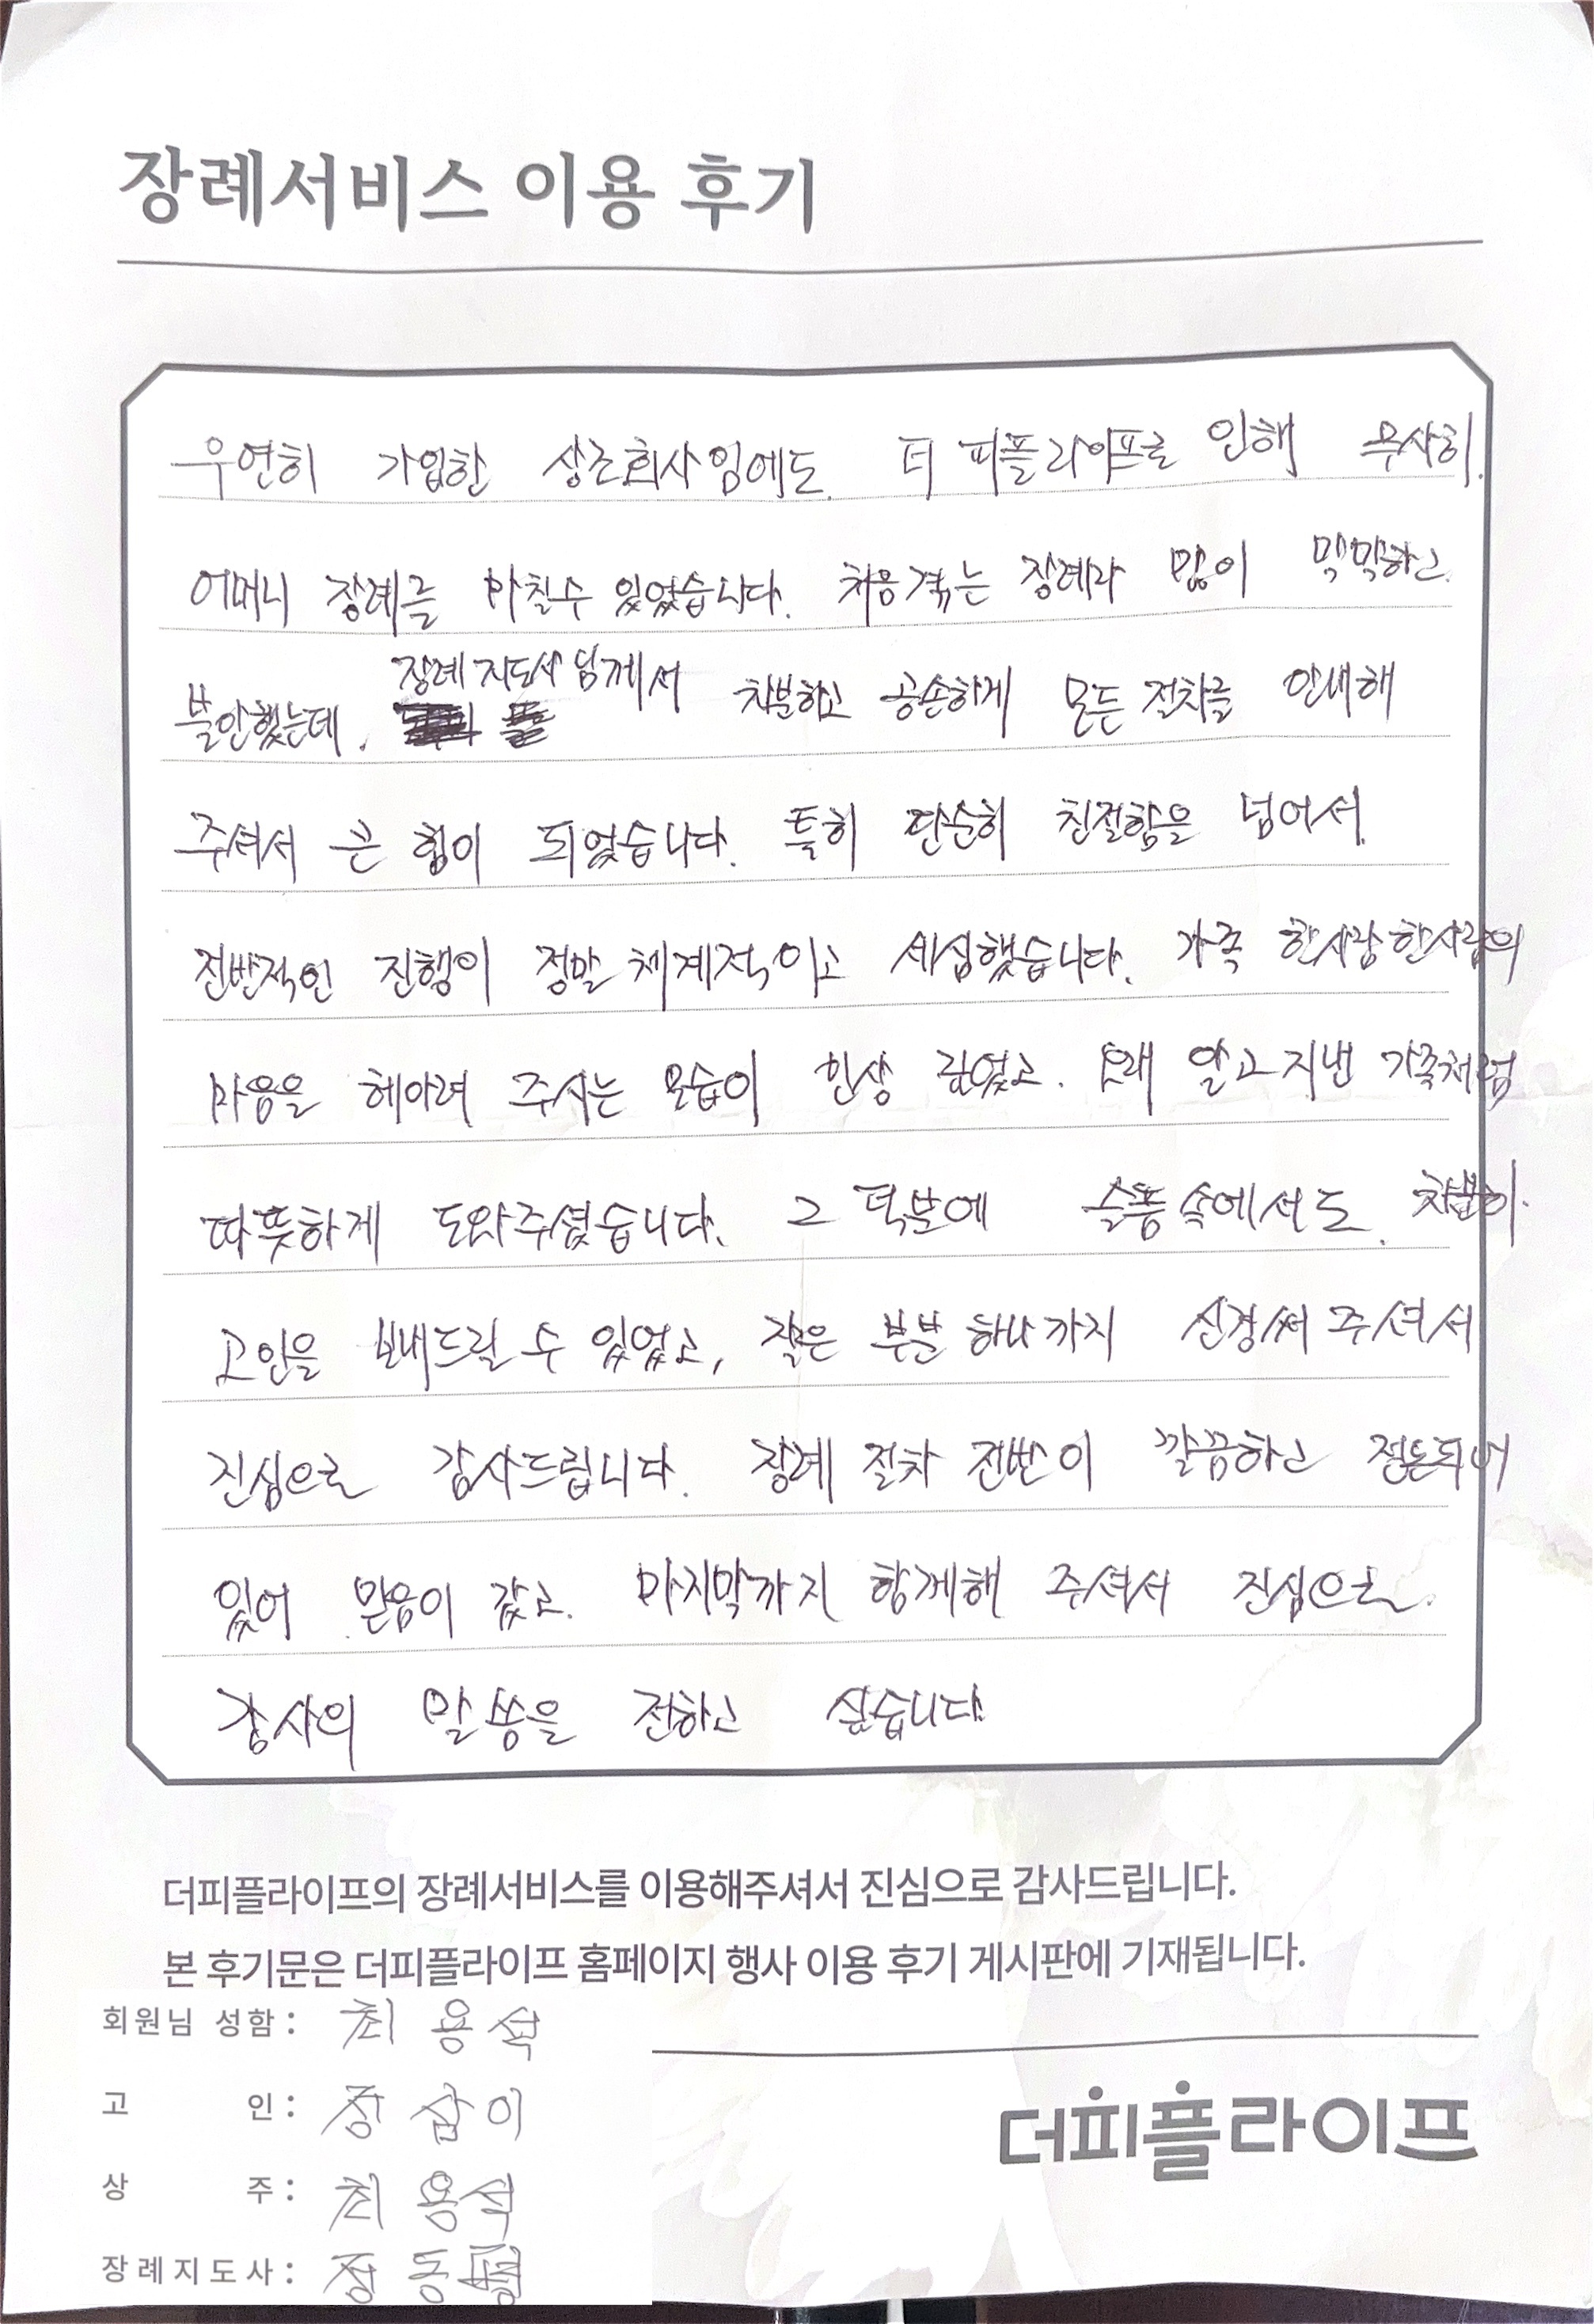 장례서비스 이용 후기
우연히 가입한 상조회사임에도. 더 피플라이프로 인해 무사히.
어머니 장례를 마칠수 있었습니다. 처음겪는 장례라 많이 막막하고.
불안했는데. 장례지도사님께서 차분하고 공손하게 모든 절차를 안내해
주셔서 큰 힘이 되었습니다. 특히 단순히 친절함을 넘어서.
전반적인 진행이 정말 체계적이고 세심했습니다. 가족 한사람한사람의
마음을 헤아려 주시는 모습이 인상 깊었고. 오래 알고지낸 가족처럼
따뜻하게 도와주셨습니다. 그 덕분에 슬픔속에서도. 차분히.
고인을 보내드릴 수 있었고, 작은 부분하나까지 신경써주셔서
진심으로 감사드립니다. 장례 절차 전반이 깔끔하고 정돈되어
있어 믿음이 갔고. 마지막까지 함께해 주셔서 진심으로.
감사의 말씀을 전하고 싶습니다
더피플라이프의 장례서비스를 이용해주셔서 진심으로 감사드립니다.
본 후기문은 더피플라이프 홈페이지 행사 이용 후기 게시판에 기재됩니다.
회원님 성함: 최용석
고 인: 장삼이
상 주: 최용석
장례지도사:
더피플라이프